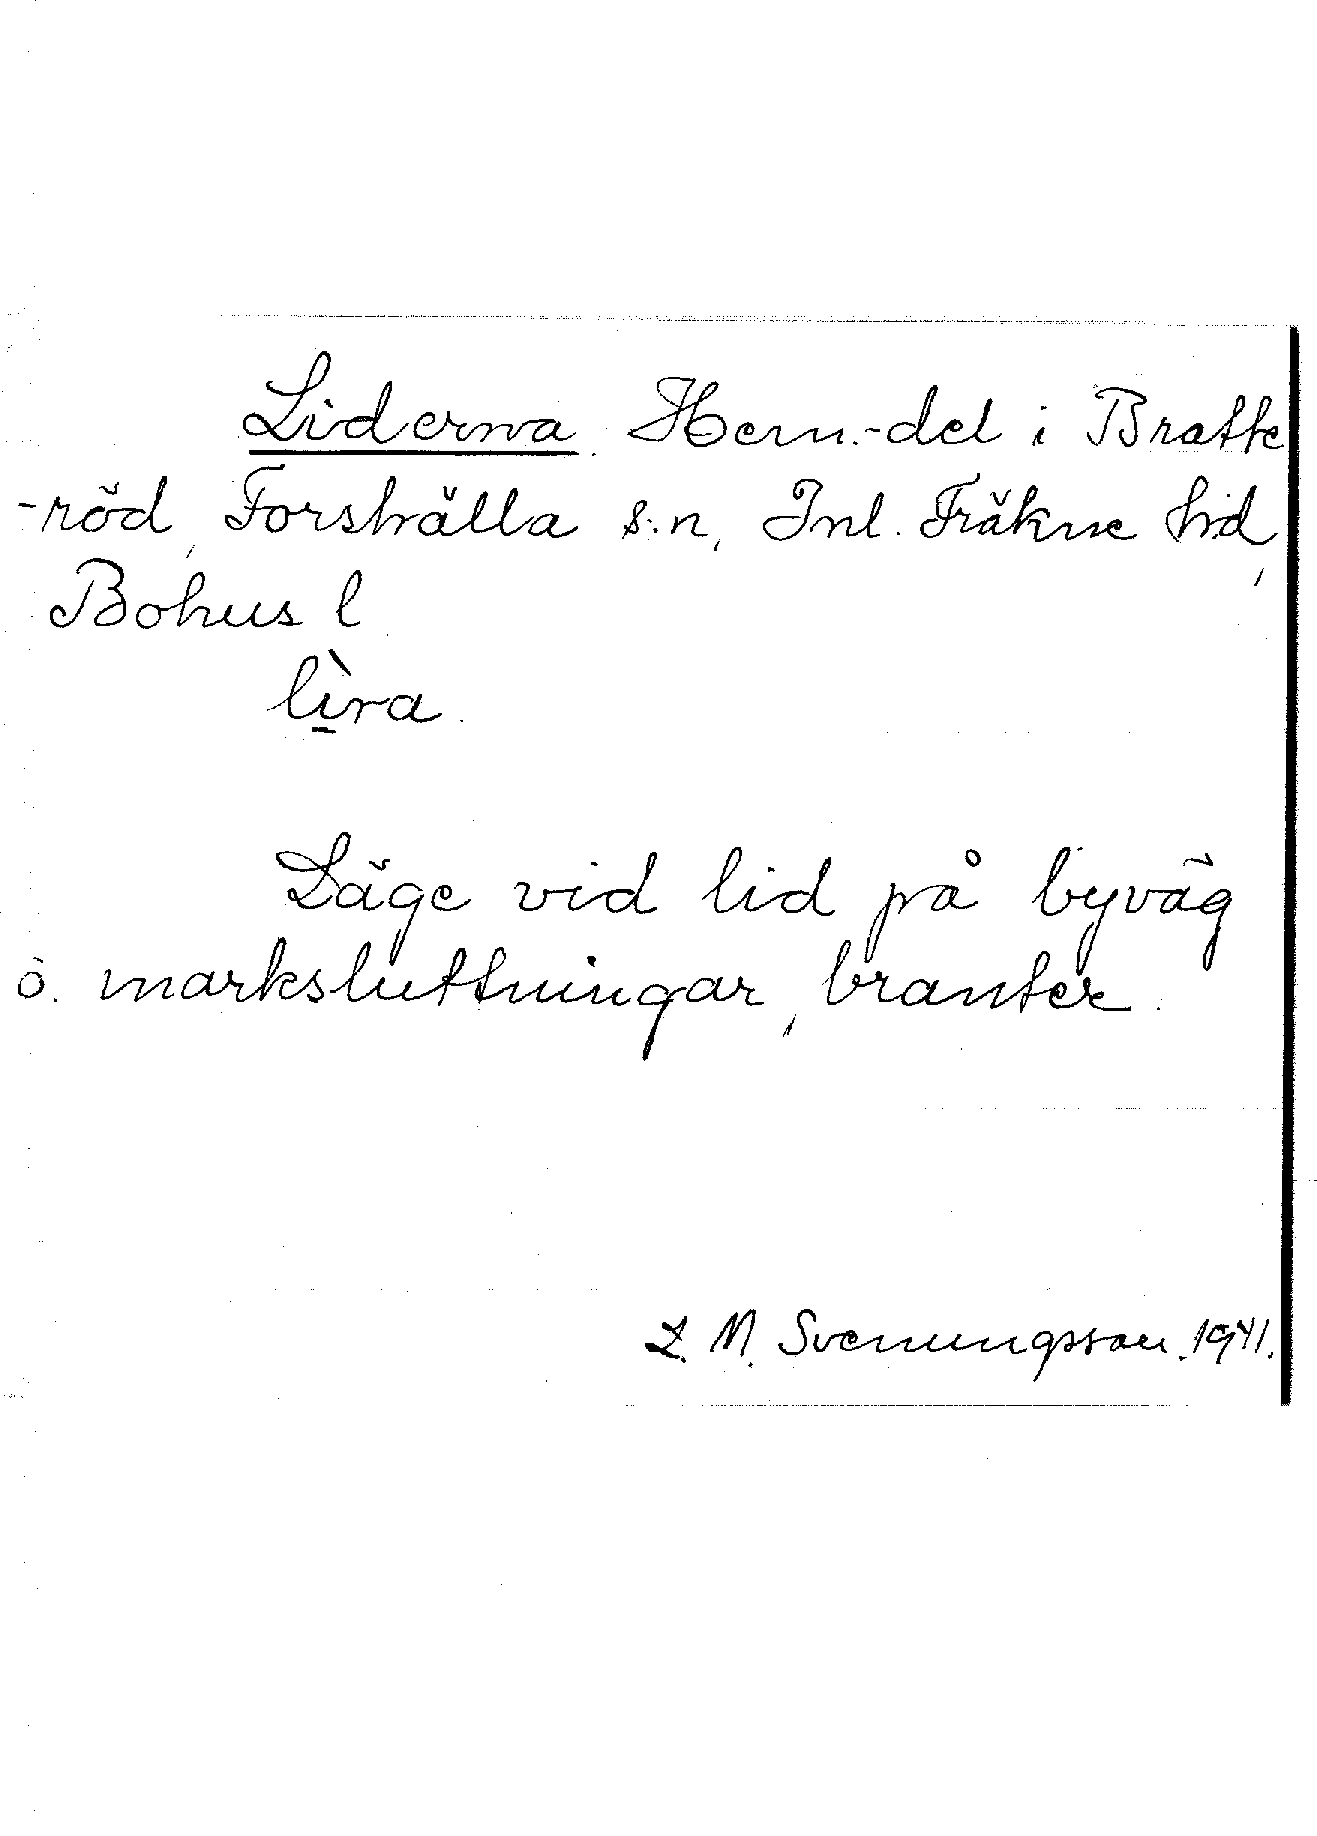 Liderna. Hem.-del i Bratte
-röd, Forshälla s:n, Inl. Fräkne hd,
Bohus l
lìra.
Läge vid lid på byväg
o. marksluttningar, branter.
L. M. Svenungsson. 1941.